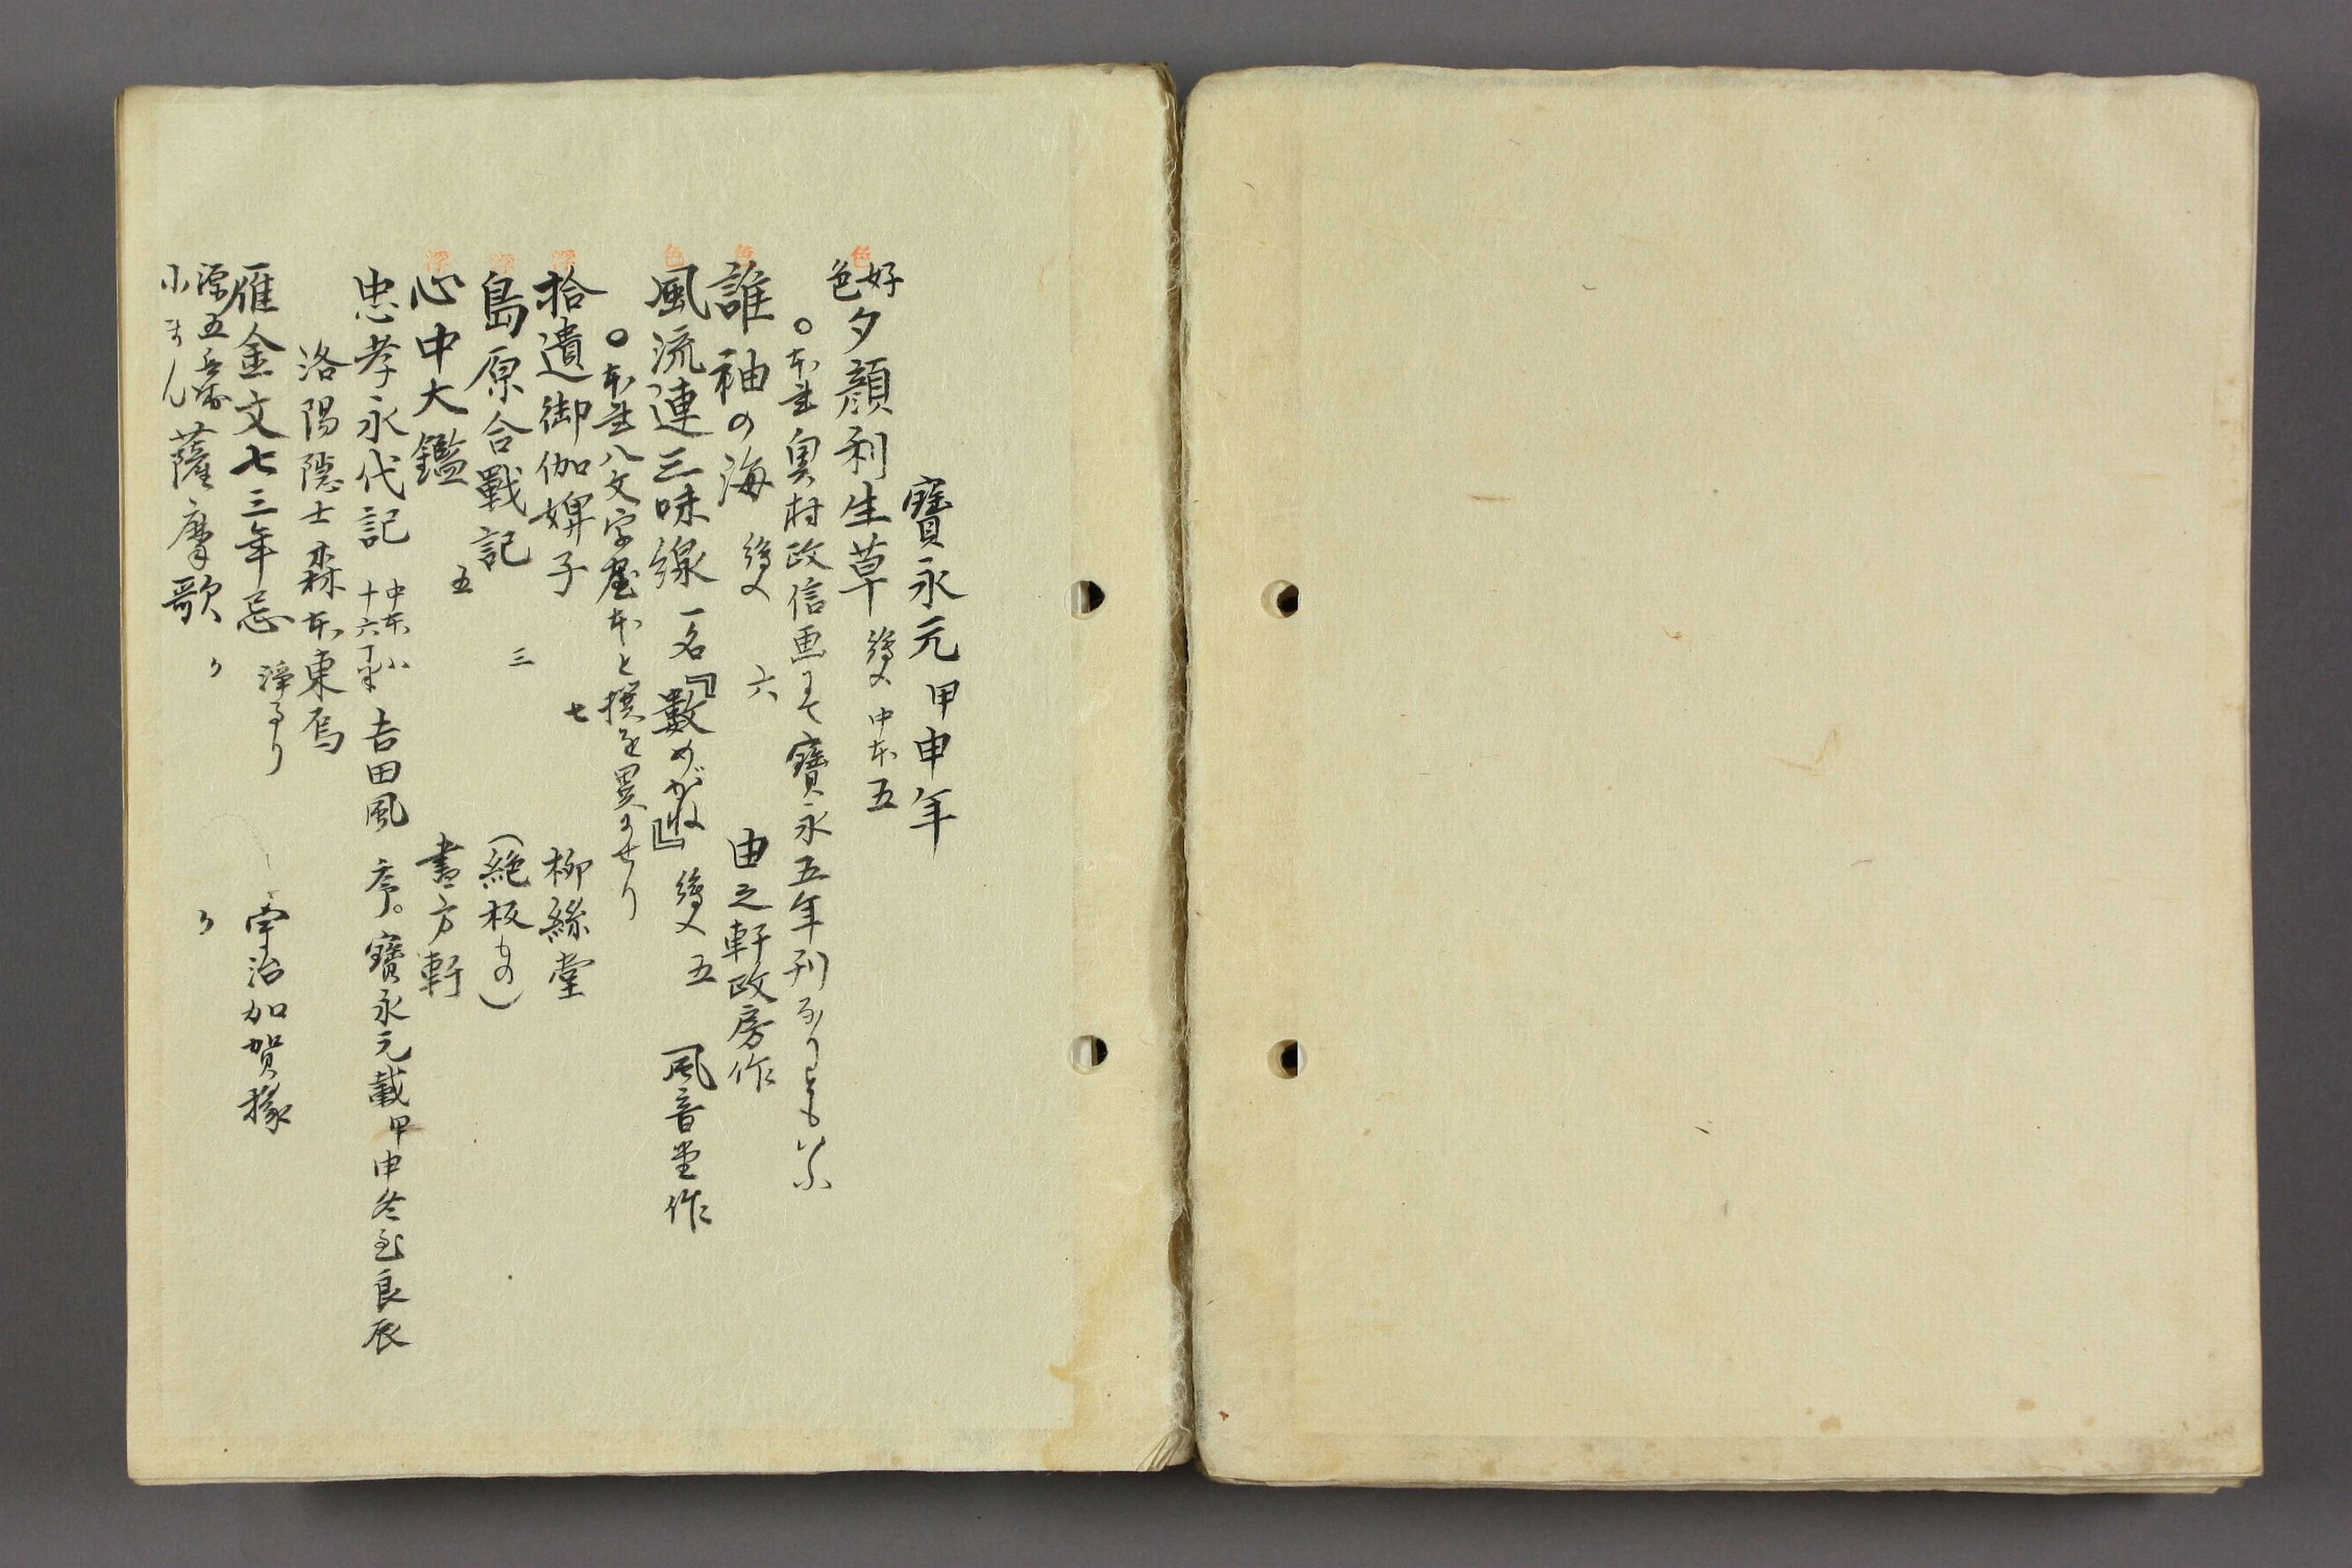 寶永元甲申年
色
好色夕顔利生草 繪入 中本 五
○本書奥村政信画にて寳永五年刊なりともいふ
色
誰袖の海 繪入 六 由之軒政房作
色
風流連三味線 一名『數めがね』 繪入 五 風音堂作
○本書八文字屋本と撰を異にせり
浮
拾遺御伽婢子 七 柳絲堂
浮
島原合戰記 三 (絶板もの)
浮
心中大鑑 五 書方軒
忠孝永代記 中本 十六丁 吉田風 序。寳永元載甲申冬至良辰
洛陽隠士森本東烏
雁金文七三年忌 浄るり 宇治加賀掾
源五兵衛 小まん 薩摩歌 〃 〃